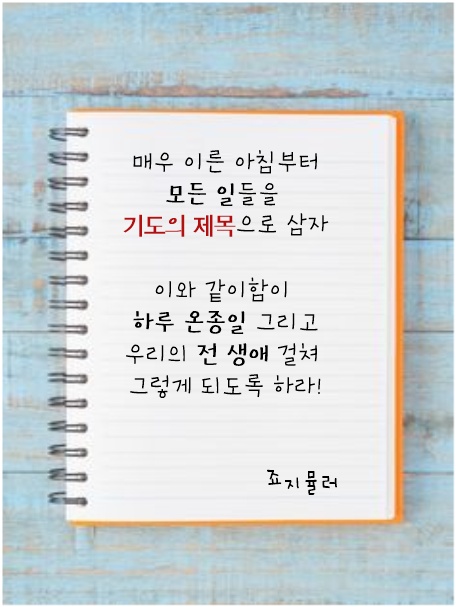 매우 이른 아침부터
모든 일들을
기도의 제목으로 삼자
이와 같이함이
하루 온종일 그리고
우리의 전 생애 걸쳐
그렇게 되도록 하라!
죠지뮬러